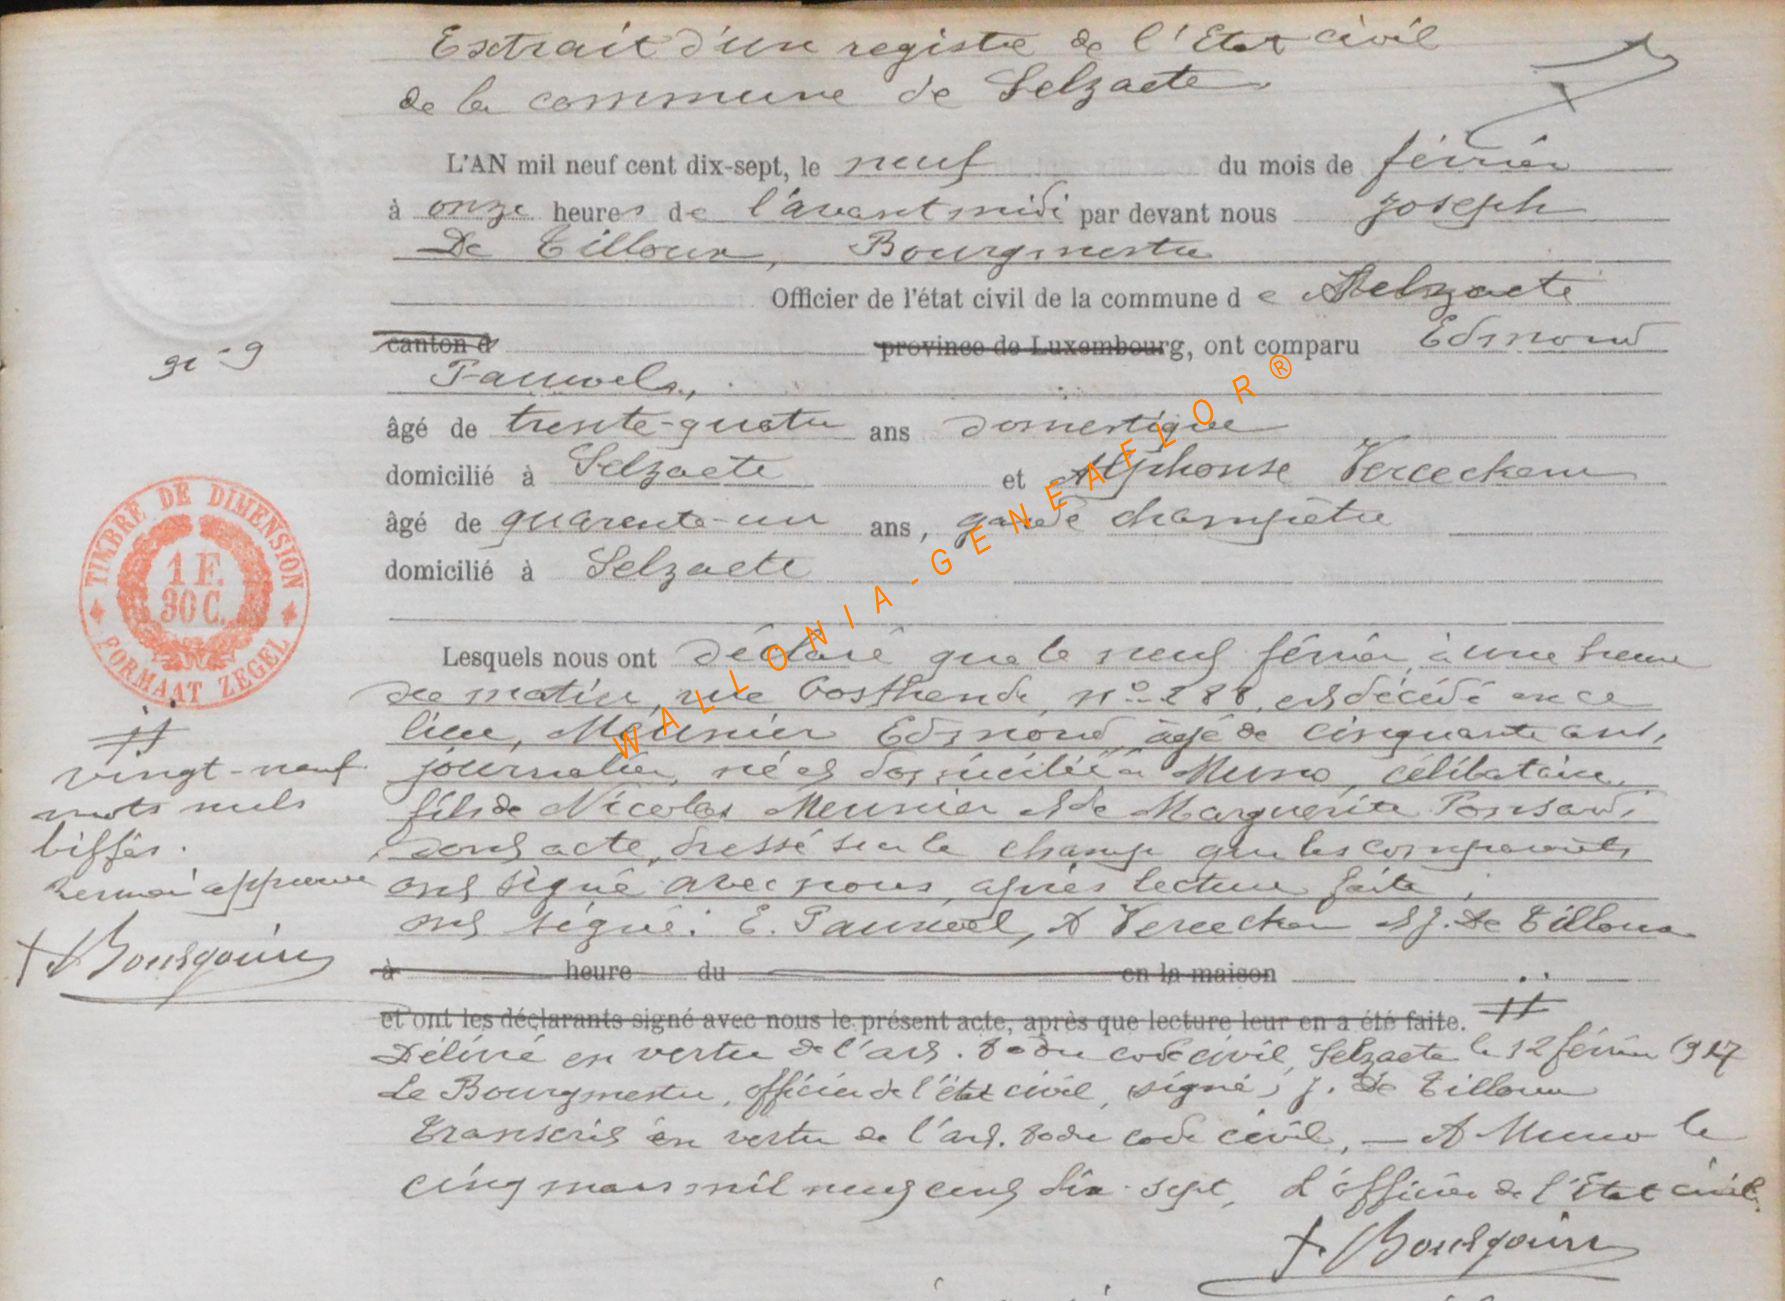 Extrait d'un registre de l'Etat civil
de la commune de Selzaete
L'AN mil neuf cent dix-sept, le neuf du mois de février
à onze heures de l'avant midi par devant nous Joseph
De Tilloux, Bourgmestre
Officier de l'état civil de la commune de Selzaete
canton d province de Luxembourg, ont comparu Edmond
Pauwels,
âgé de trente-quatre ans domestique
domicilié à Selzaete et Alphonse Vereecken
âgé de quarante-un ans, garde champêtre
domicilié à Selzaete
Lesquels nous ont déclaré que le neuf février, à une heure
du matin, rue Oosthende, n° 288, est décédé en ce
lieu, Meunier Edmond âgé de cinquante ans,
journalier, né et domicilié à Muno, célibataire,
fils de Nicolas Meunier et de Marguerite Ponsard,
dont acte, dressé sur le champ que les comparants
ont signé avec nous, après lecture faite,
ont signé: E. Pauwels, A Vereecken et J. De Tilloux
à heure du en la maison
et ont les déclarants signé avec nous le présent acte, après que lecture leur en a été faite. #
Délivré en vertu de l'art. 80 du code civil, Selzaete le 12 février 1917
Le Bourgmestre, officier de l'état civil, signé, J. De Tilloux
Transcrit en vertu de l'art. 80 du code civil, — A Muno le
cinq mars mil neuf cent dix-sept, L'officier de l'Etat civil
Bourgouin
N° 9
TIMBRE DE DIMENSION
1 F.
30 C.
FORMAAT ZEGEL
#
vingt-neuf
mots nuls
biffés.
approuvé
Bourgouin
WALLONIA-GENEAFLOR®